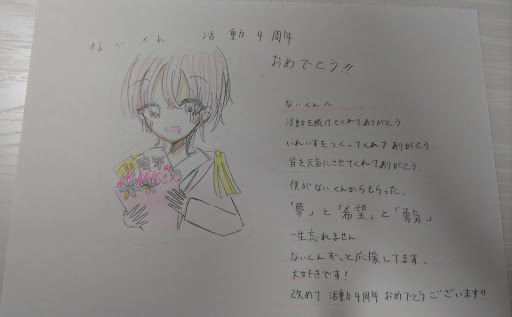 ないくん 活動4周年
おめでとう!!
ないくんへ
活動を続けてくれてありがとう
いれいすをつくってくれてありがとう
皆を元気にさせてくれてありがとう.
僕がないくんからもらった、
「夢」と「希望」と「勇気」
一生忘れません
ないくんずっと応援してます.
大好きです!
改めて 活動4周年 おめでとうございます!!